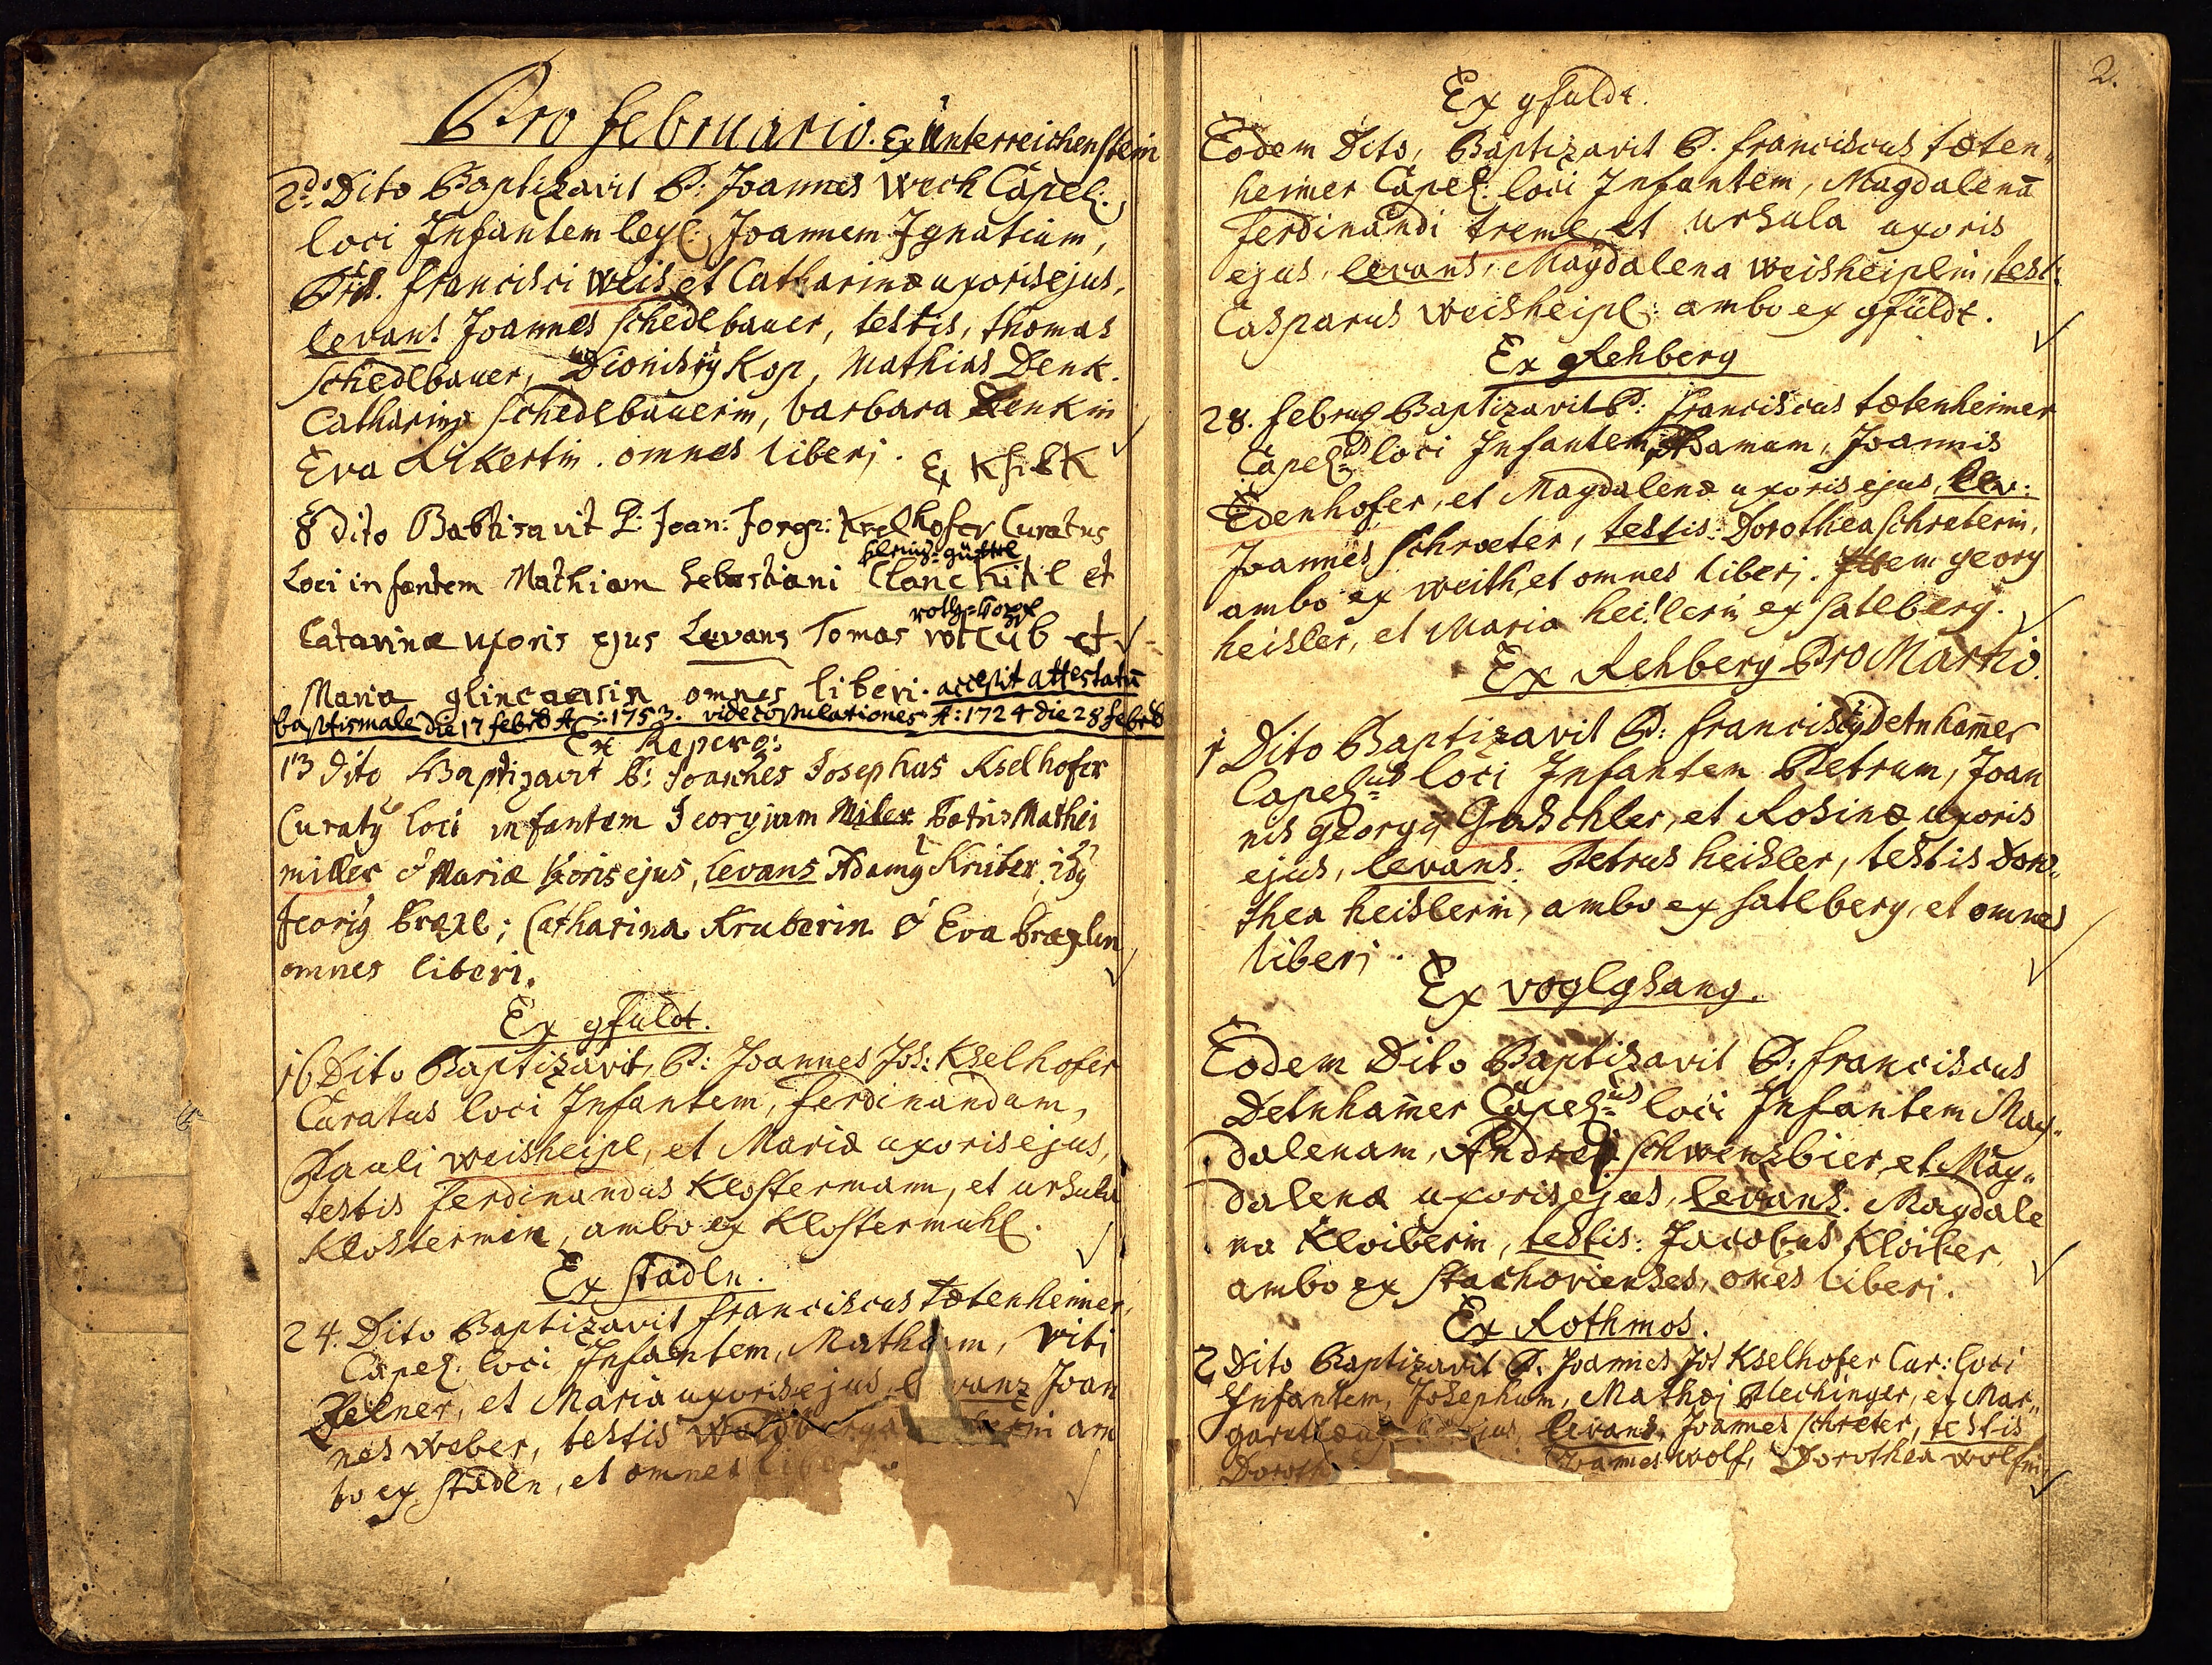 Pro februario. Ex Unterreichenstein
2do Dito Baptizavit P: Joannes Wech Capel:
loci Infantem leg: Joannem Ignatium,
Francisci Weis et Catharinæ uxoris ejus,
levans Joannes schedlbauer, testis, thomas
schedlbauer, Dionisiy Kop, Mathias Denk.
Catharina schedlbauerin, barbara Denkin
Eva Likertin. omnes liberj. Ex
8 dito Babtisavit P: Joan: Curatus
Loci infantem Mathiam Sebastiani
Catarinæ uxoris ejus Levans Tomas rotkub et
Maria omnes liberi. accessit attestatū
baptismale die 17 febrb A: 1753. vide copulationes A: 1724 die 28 febrb
13 dito Baptizavit P: Joannes Josephus Kselhofer
Curaty loci infantem Georgium Miler Patris Mathei
miller & Mariæ uxoris ejus, levans Adamy Kruber
Georiy brexl; Catharina Kruberin & Eva brexlin
omnes liberi.
Ex gfuldt.
16 Dito Baptizavit, P: Joannes Jos: Kselhofer
Curatus loci Infantem, ferdinandum,
Pauli weisheipl, et Mariæ uxoris ejus,
testis ferdinandus Klostermann, et ursula
Klosterman, ambo ex Klostermuhl.
Ex stadln.
24. Dito Baptizavit franciscus tætenheimer,
Capel: loci Infantem, viti
Zelner, et Maria uxoris ejus, Joan
nes weber, testis am
bo ex stadln, et omnes
2.
Ex gfuldt.
Eodem Dito, Baptizavit P. franciscus tæten„
heimer Capel: loci Infantem, Magdalenā
ferdinandi treml, et ursula uxoris
ejus, levans, Magdalena weisheiplin, test:
Casparus weisheipl: ambo ex gfüldt.
Ex Rehberg
28. februa Baptizavit P: franciscus tætenheimer
Capelus loci Infantem, Adamum, Joannis
Edenhofer, et Magdalenæ uxoris ejus, lev:
Joannes schroeter, testis: Dorothea schreterin,
ambo ex weith, et omnes liberj. Item georg
heisler, et Maria heislerin ex satlberg.
Ex Rehberg Pro Martio.
1 Dito Baptizavit P: franciscy Detnham̄er
Capelus loci Infantem Petrum, Joan
nis georgy Gaschler, et Rosinæ uxoris
ejus, levans. Petrus heisler, testis Doro„
thea heislerin, ambo ex satlberg, et omnes
liberj.
Ex voglgsang.
Eodem Dito Baptizavit P: franciscus
Detnham̄er Capelus loci Infantem Mag„
dalenam, Andreæ schwenzbier, et Mag„
dalenæ uxoris ejus, levans. Magdale
na Kloiberin, testis: Jacobus Kloiber,
ambo ex stachorienses, om̄es liberj.
Ex Rothmos.
2 Dito Baptizavit P. Joannes Jos Kselhofer Cur: loci
Infantem, Josephum, Mathæj Plechinger, et Mar„
garethæ levans, Joannes schreter, testis
Doroth Joannes wolf, Dorothea wolfin